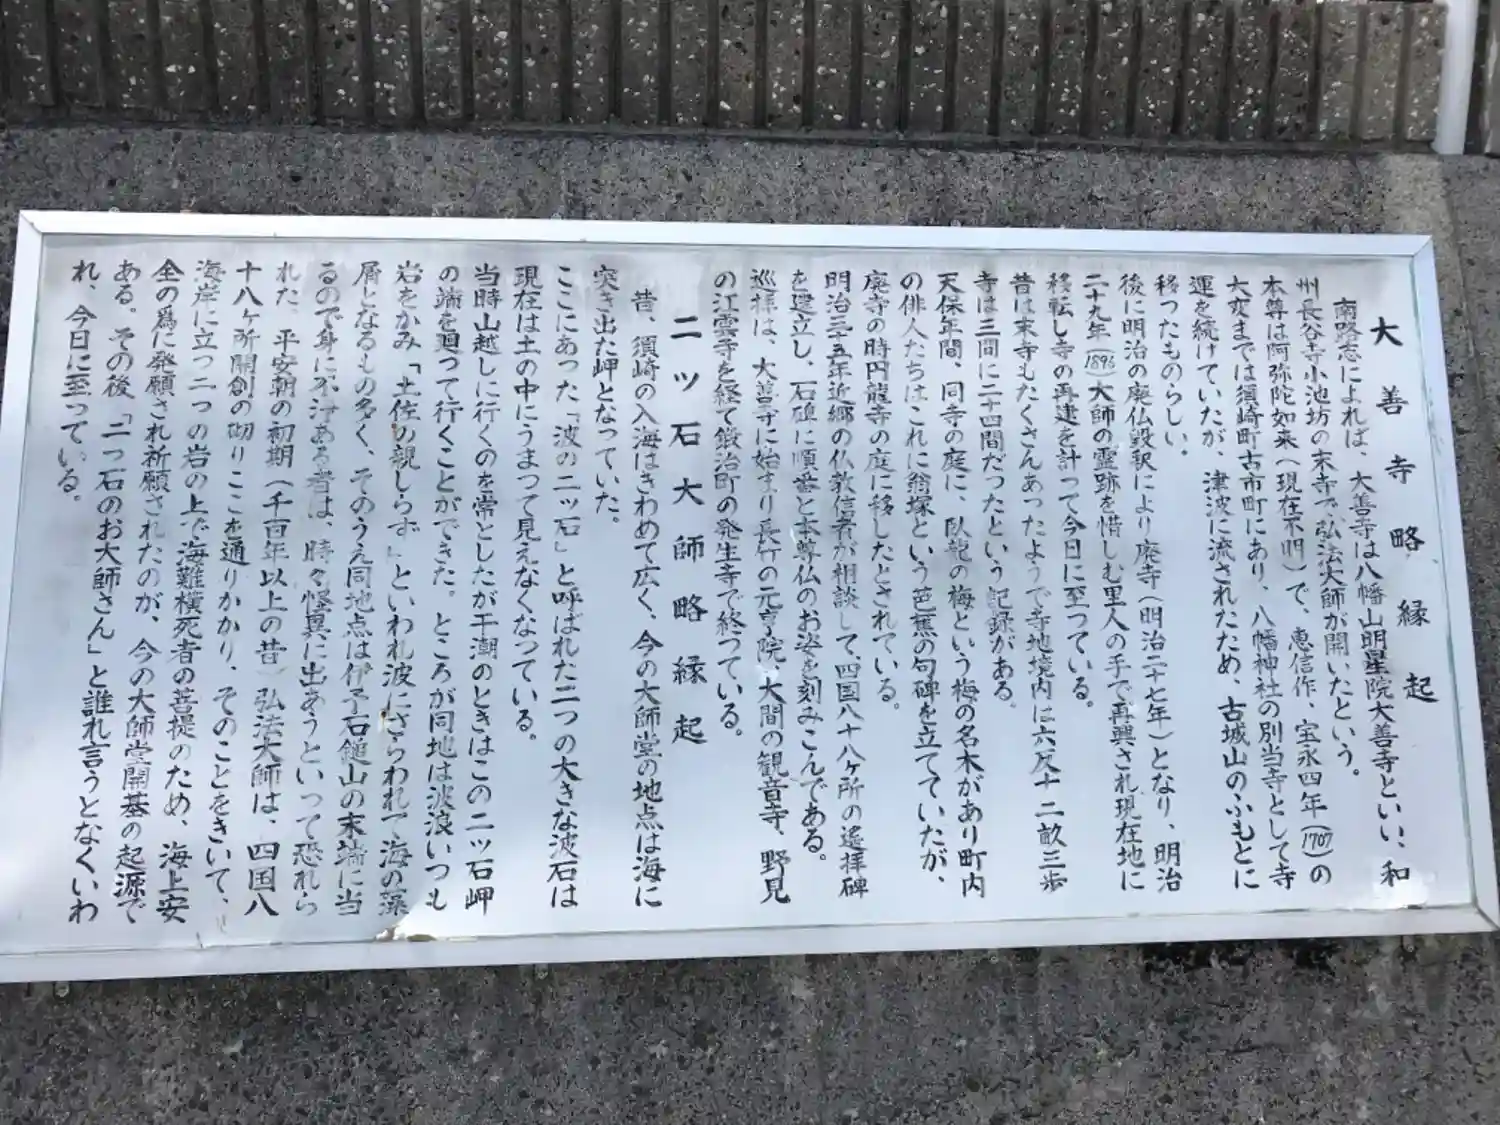 大善寺略縁起
南路志によれば、大善寺は八幡山明星院大善寺といい、和
州長谷寺小池坊の末寺で弘法大師が開いたという。
本尊は阿弥陀如来(現在不明)で、恵信作、宝永四年(1707)の
大変までは須崎町古市町にあり、八幡神社の別当寺として寺
運を続けていたが、津波に流されたため、古城山のふもとに
移ったものらしい。
後に明治の廃仏毀釈により廃寺(明治二十七年)となり、明治
二十九年(1896)大師の霊跡を惜しむ里人の手で再興され現在地に
移転し寺の再建を計って今日に至っている。
昔は末寺もたくさんあったようで寺地境内は六反十二畝三歩
寺は三間に二十四間だったという記録がある。
天保年間、同寺の庭に、臥龍の梅という梅の名木があり町内
の俳人たちはこれに翁塚という芭蕉の句碑を立てていたが、
廃寺の時円龍寺の庭に移したとされている。
明治三五年近郷の仏教信者が相談して、四国八十八ヶ所の遙拝碑
を建立し、石碑に順番と本尊仏のお姿を刻みこんである。
巡拝は、大善寺に始まり長竹の元亨院、大間の観音寺、野見
の江雲寺を経て鍛治町の発生寺で終っている。
二ッ石大師略縁起
昔、須崎の入海はきわめて広く、今の大師堂の地点は海に
突き出た岬となっていた。
ここにあった「波の二ッ石」と呼ばれた二つの大きな波石は
現在は土の中にうまって見えなくなっている。
当時山越しに行くのを常としたが干潮のときはこの二ッ石岬
の端を廻って行くことができた。ところが同地は波浪いつも
岩をかみ「土佐の親しらず」といわれ波にさらわれて海の藻
屑となるもの多く、そのうえ同地点は伊予石鎚山の末端に当
るので身に不浄ある者は、時々怪異に出あうといって恐れら
れた。平安朝の初期(千百年以上の昔)弘法大師は、四国八
十八ヶ所開創の砌りここを通りかかり、そのことをきいて、
海岸に立つ二つの岩の上で海難横死者の菩提のため、海上安
全の為に発願され祈願されたのが、今の大師堂開基の起源で
ある。その後、「二つ石のお大師さん」と誰れ言うとなくいわ
れ、今日に至っている。